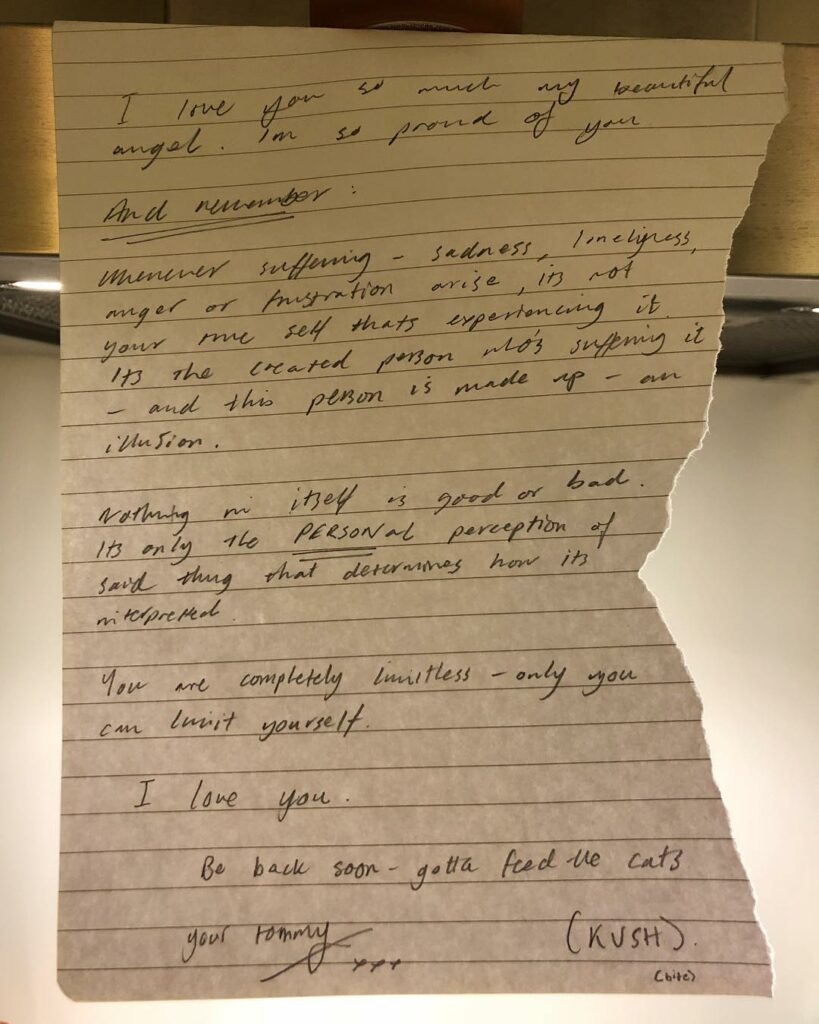 I love you so much my beautiful
angel. Im so proud of you
And remember:
Whenever suffering - sadness, loneliness,
anger or frustration arise, its not
your true self thats experiencing it.
Its the created person who's suffering it
- and this person is made up - an
illusion.
Nothing in itself is good or bad.
Its only the PERSONal perception of
said thing that determines how its
interpretted.
You are completely limitless - only you
can limit yourself.
I love you.
Be back soon - gotta feed the cats
your tommy xxx (KUSH).
(bite)